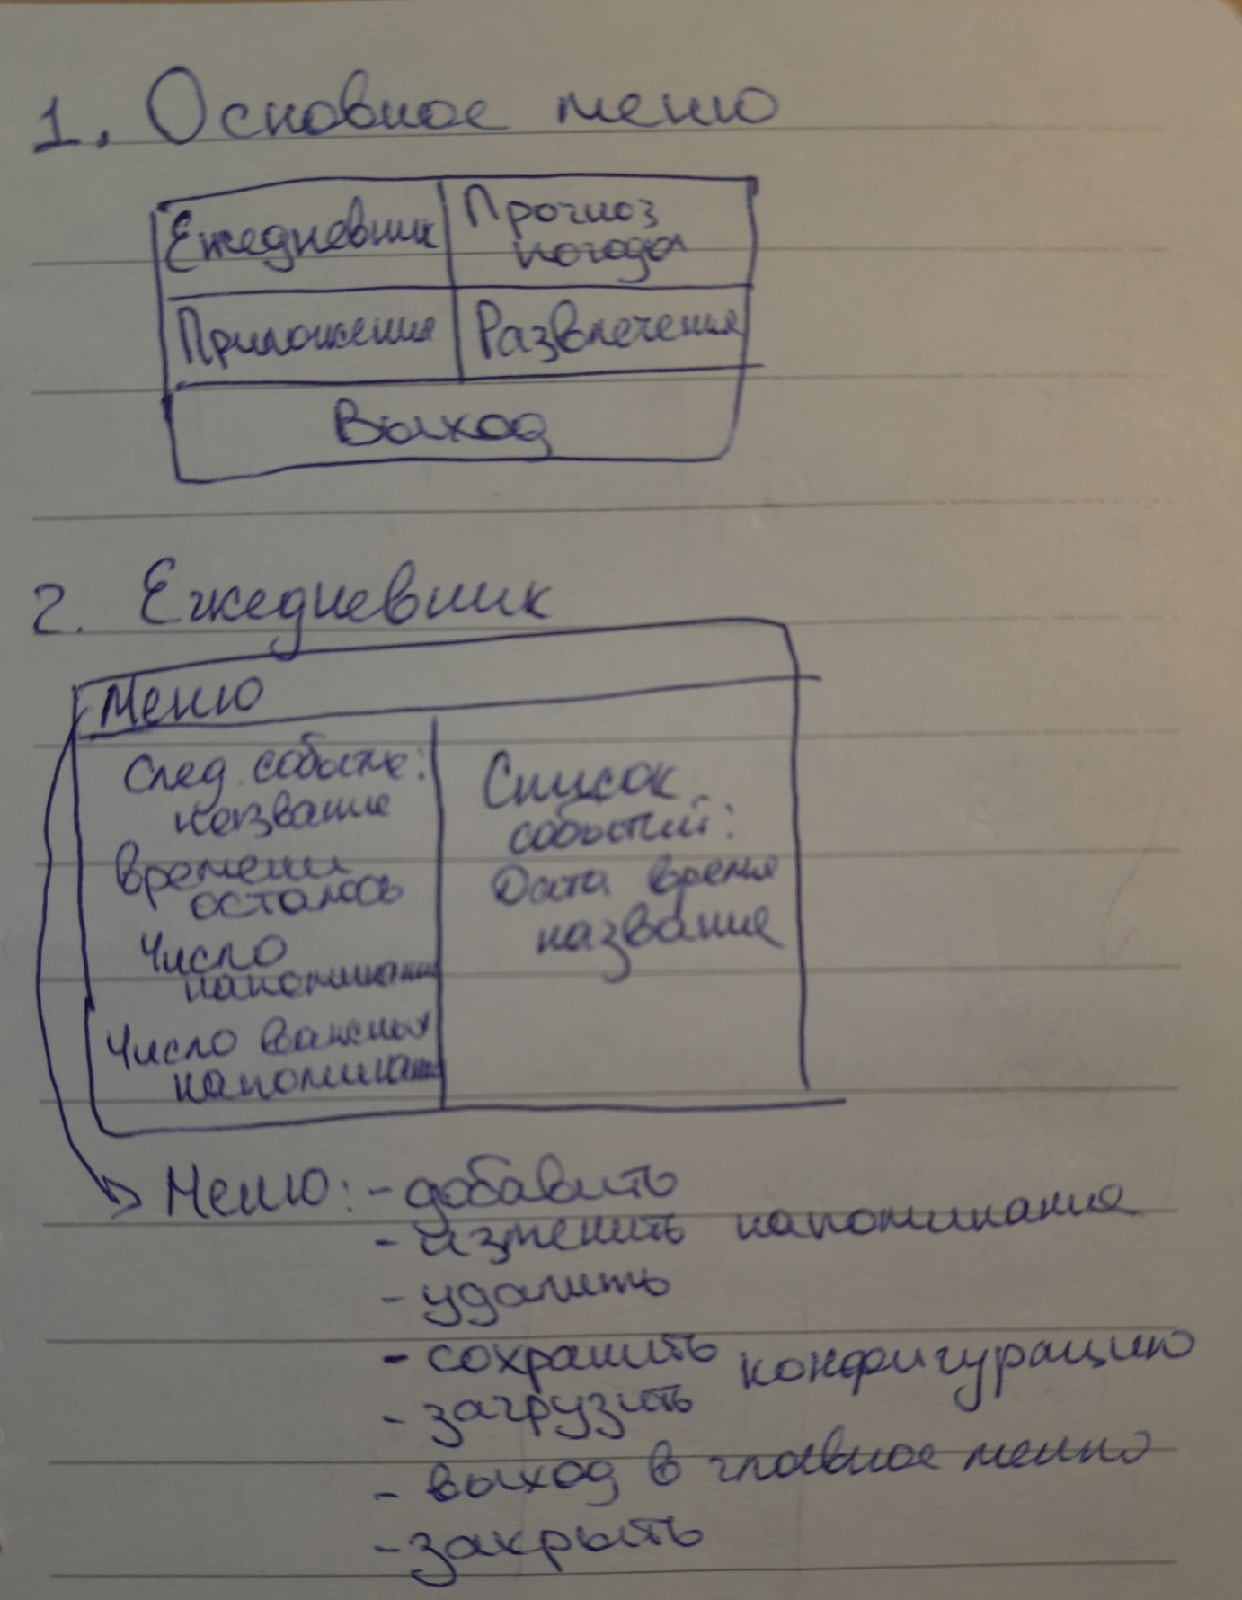 1. Основное меню
Ежедневник
Прогноз
погоды
Приложения
Развлечения
Выход
2. Ежедневник
Меню
След. событие:
название
Времени
осталось
Число
напоминаний
Число важных
напоминаний
Список
событий:
Дата время
название
Меню: - добавить
- изменить напоминания
- удалить
- сохранить конфигурацию
- загрузить
- выход в главное меню
- закрыть